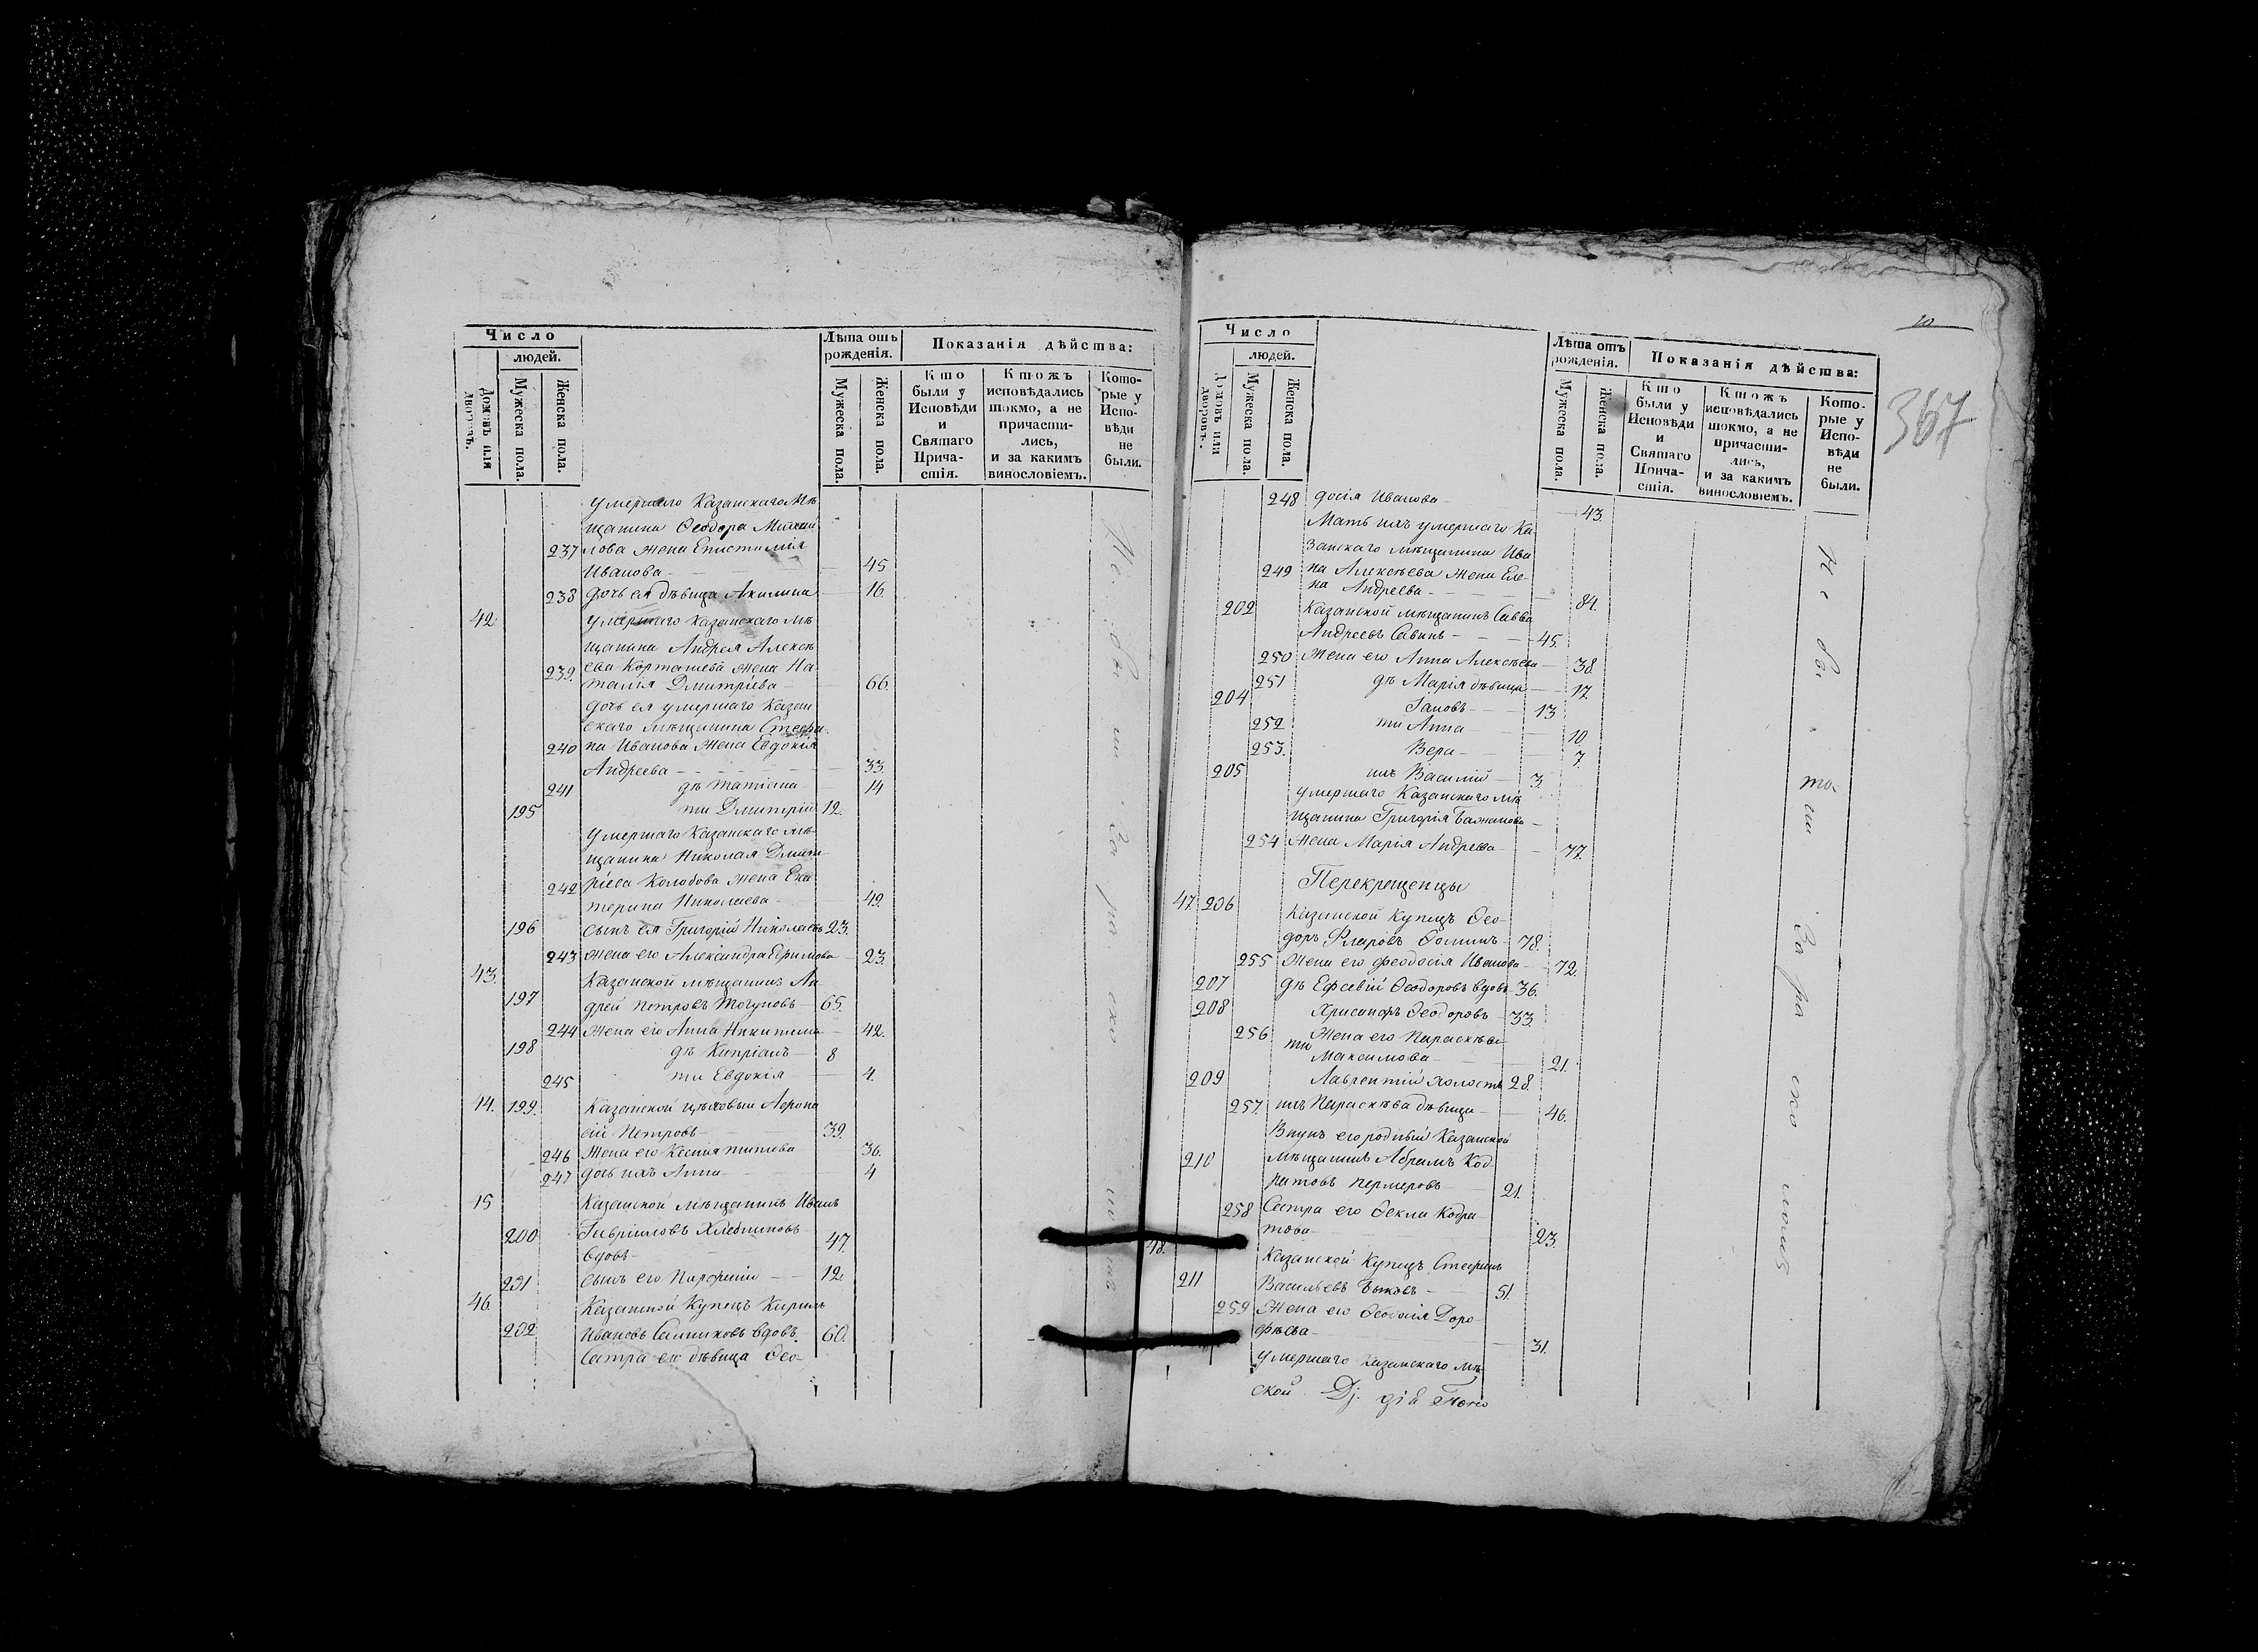 Число
людей.
Домовъ или дворовъ.
Мужеска пола.
Женска пола.
Лѣта отъ рожденія.
Мужеска пола.
Женска пола.
Показанія дѣйства:
Кто были у Исповѣди и Святаго Причастія.
Ктожъ исповѣдались токмо, а не причастились, и за какимъ винословіемъ.
Которые у Исповѣди не были.
умершаго Казанскаго мѣ
щанина Ѳеодора Михаи
237 лова жена Епистимія
Иванова 45
238 дочь ея дѣвица Акилина 16.
42 умершаго Казанскаго мѣ
щанина Андрея Алексѣ
239. ева Корташева жена На-
талія Дмитріева 66.
дочь ея умершаго Казан
скаго мѣщанина Стефа-
240 на Иванова жена Евдокія
Андреева 33.
241 дѣ Татіана 14
195 ти Дмитрій 12.
умершаго Казанскаго мѣ-
щанина Николая Дмит-
242 ріева Колобова жена Ека
терина Николаева 49.
196 сынъ ея Григорій Николаевъ 23.
243 жена его Александра Ефимова 23.
43. Казанской мѣщанинъ Ан
197 дрей Петровъ 65.
244 жена его Анна Никитина 42.
198 дѣ Кипріанъ 8
245 ти Евдокія 4.
14. 199. Казанской цѣховый Афона
сій Петровъ 39.
246 жена его Ксенія Титова 36.
247 дочь ихъ Анна 4
15 Казанской мѣщанинъ Иванъ
200 Гавриловъ Хлебниковъ
вдовъ 47.
201 сынъ его Парфеній 12.
46. Казанской Купецъ Кирилъ
202 Ивановъ вдовъ. 60.
Сестра его дѣвица Ѳео-
Не были за раско
20
367
Число
людей.
Домовъ или дворовъ.
Мужеска пола.
Женска пола.
Лѣта отъ рожденія.
Мужеска пола.
Женска пола.
Показанія дѣйства:
Кто были у Исповѣди и Святаго Причастія.
Ктожъ исповѣдались токмо, а не причастились, и за какимъ винословіемъ.
Которые у Исповѣди не были.
248 досія Иванова 43.
Мать ихъ умершаго Ка-
занскаго мѣщанина Ива
249 на Алексѣева жена Еле-
на Андреева 84.
202 Казанской мѣщанинъ Савва
Андреевъ Савинъ 45.
250 жена его Анна Алексѣева 38.
251 дѣ Марія дѣвица 17.
204 13
252 ти Анна 10
253. Вера 7.
205 ихъ Василій 3.
умершаго Казанскаго мѣ
щанина Григорія
254 жена Марія Андреева 77.
Перекрещенцы
47. 206 Казанской Купецъ Ѳео-
доръ Ѳоминъ 78.
255 жена его Феодосія Иванова 72.
207 дѣ Евсевій Ѳеодоровъ вдовъ 36.
208 Хрисанфъ Ѳеодоровъ 33.
256 жена его Параскѣва
ти Максимова 21.
209 Лаврентій холостъ 28.
257. ихъ Параскѣва дѣвица 46.
Внукъ его родный Казанской
210 мѣщанинъ Абрамъ Код-
ратовъ 21.
258 Сестра его Ѳекла Кодра
това 23.
48. Казанской Купецъ Стефанъ
211 Васильевъ Быковъ 51.
259 жена его Ѳеодосія Доро
фѣева 31.
умершаго Казанскаго мѣ-
Не бы ли За раско